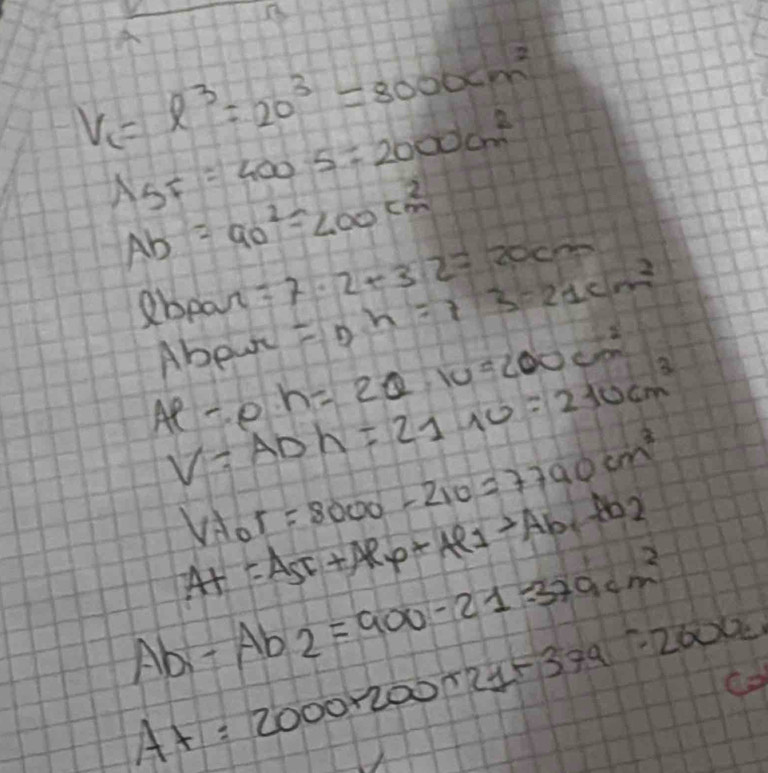 A B
Vc = l³ = 20³ = 8000cm³
A5F = 400 5 = 2000cm²
Ab = 20² = 400 cm²
2bpar = 7 · 2 + 3 2 = 20cm
Abpar = b h = 7 3 = 21cm²
Al = p · h = 20 · 10 = 200cm²
V = Ab h = 21 10 = 210cm³
VtoT = 8000 - 210 = 7790cm³
At = A5F + Alp + Al1 + Ab1 - Ab2
Ab1 - Ab2 = 400 - 21 = 379cm²
At = 2000 + 200 + 21 + 379 = 2600c